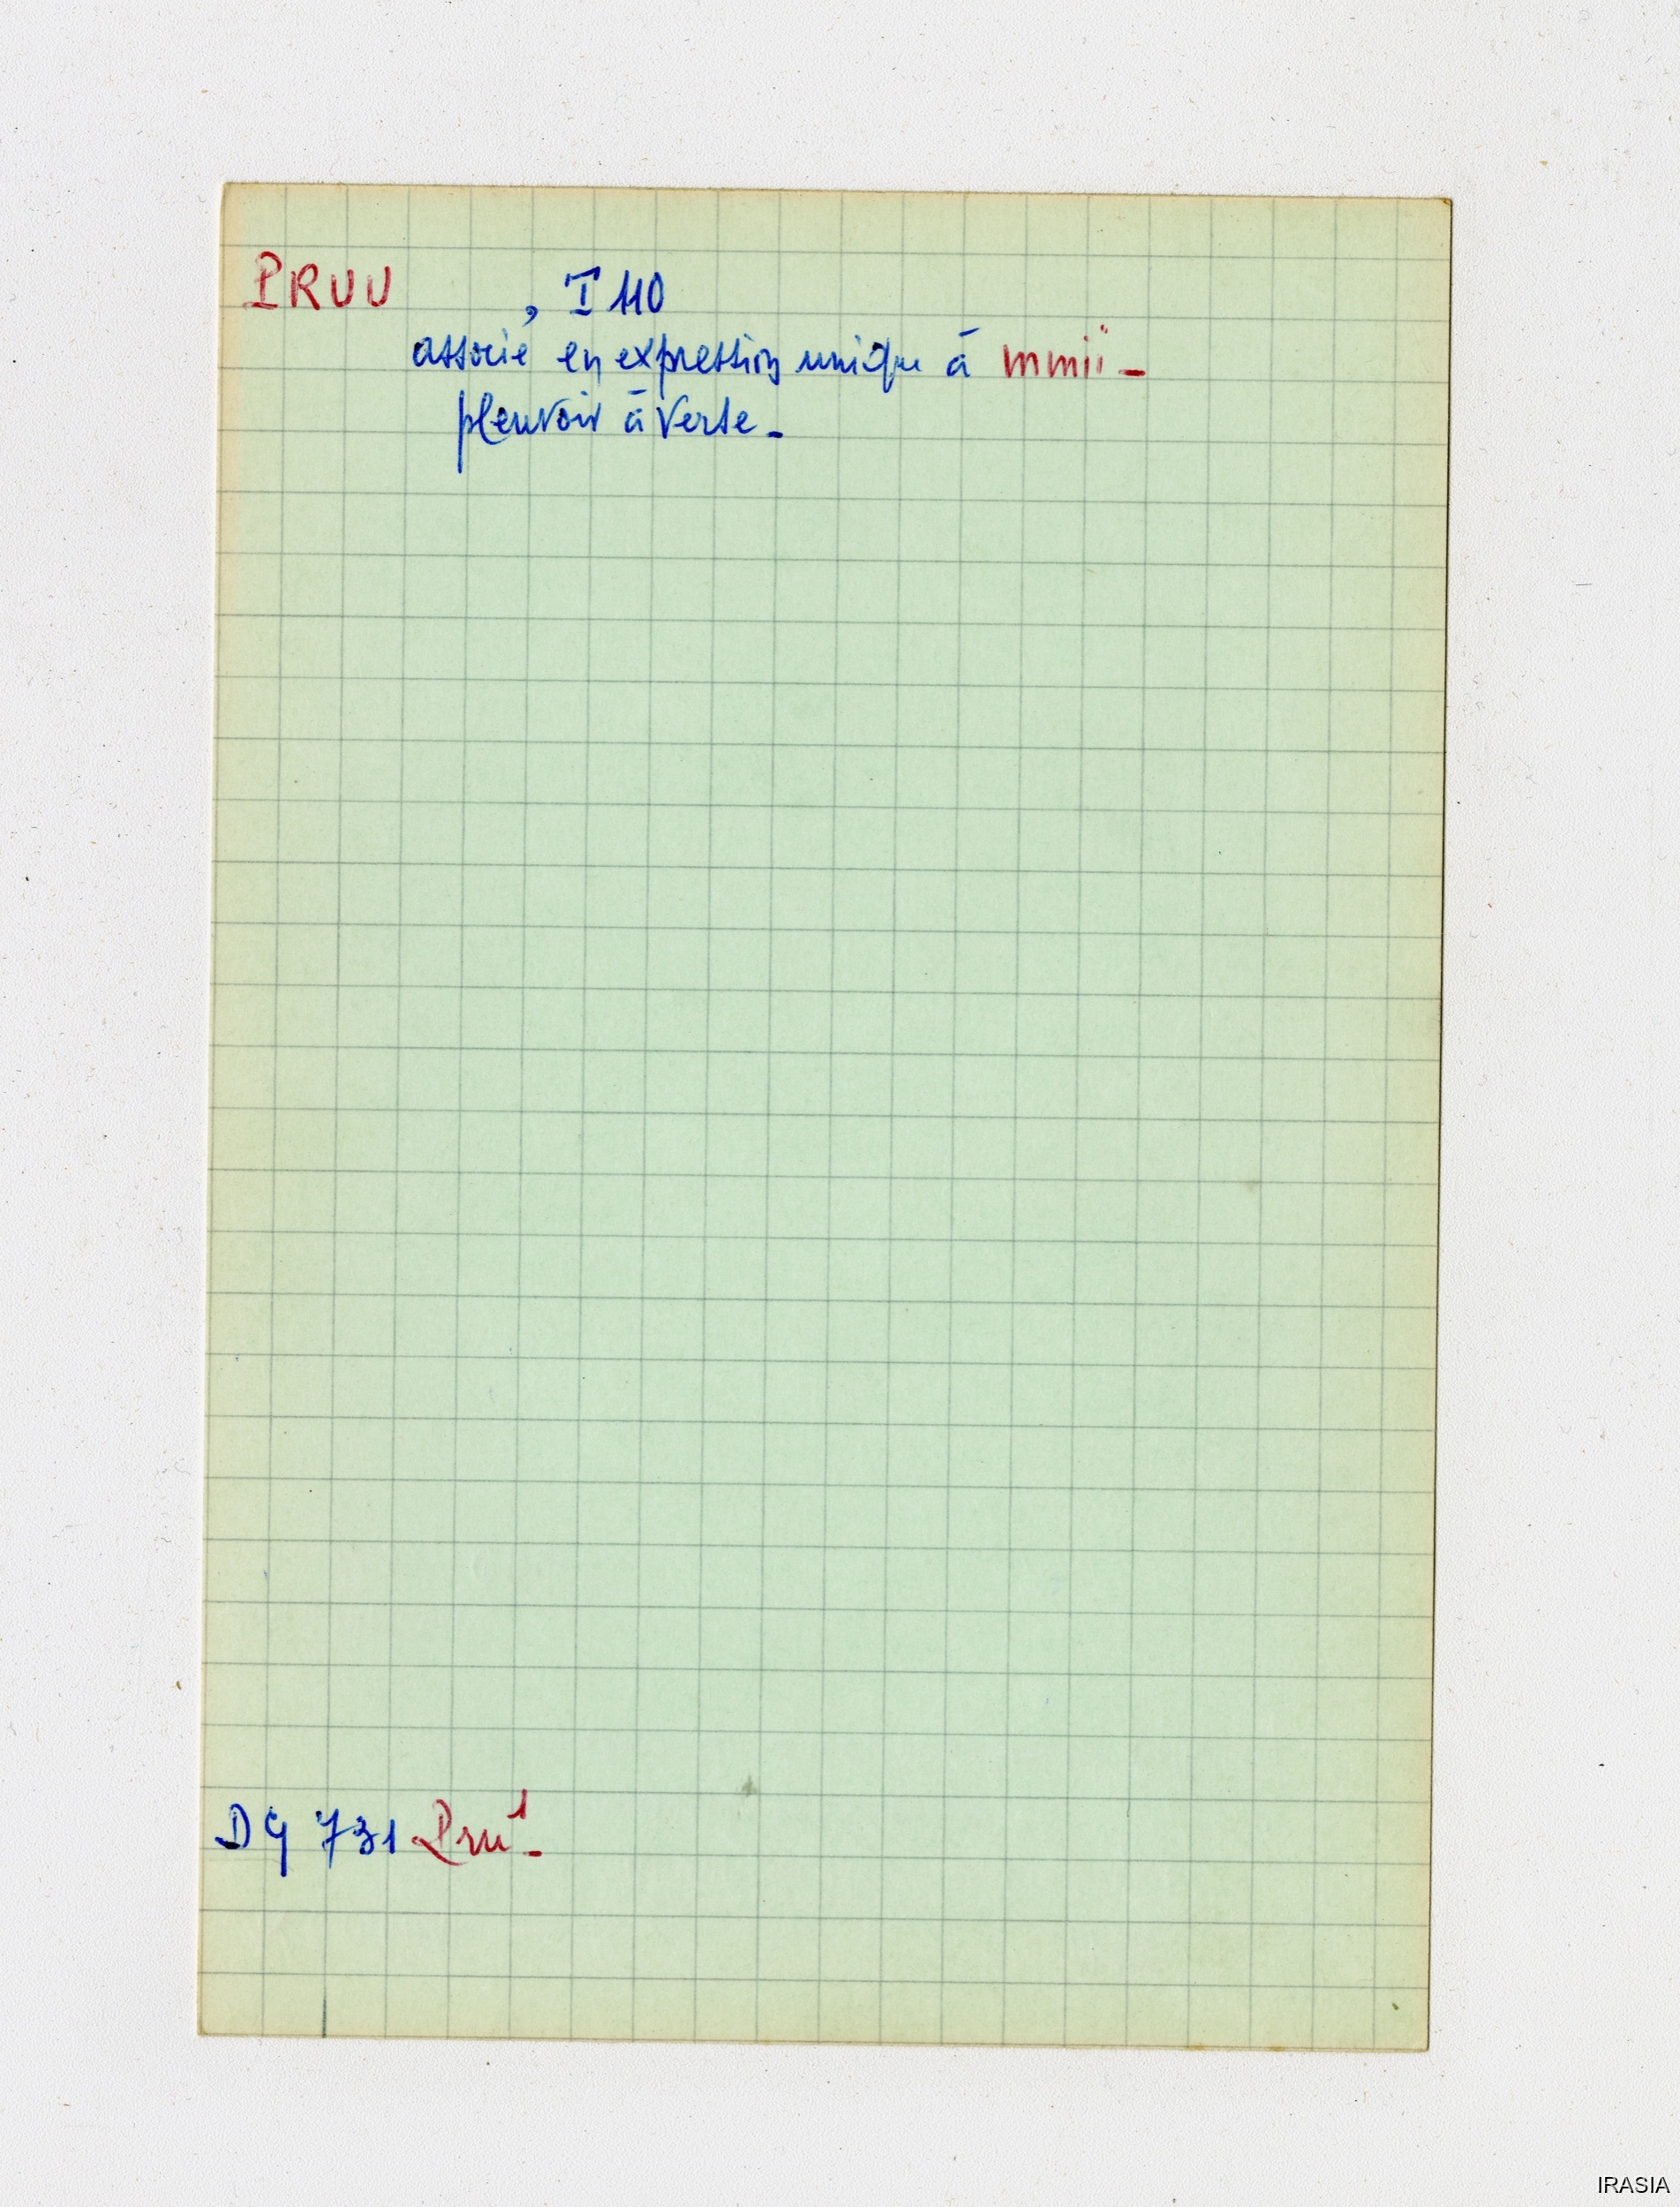 PRUU , I 110
associé en expression unique à mmii -
pleuvoir à verse -
DG 731 Pru¹ -
IRASIA